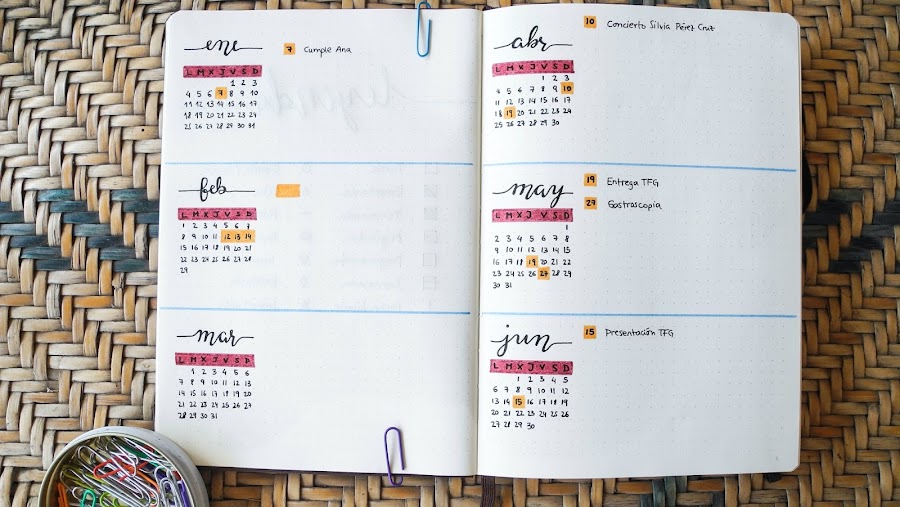 ene
7 Cumple Ana
L M X J V S D
1 2 3
4 5 6 7 8 9 10
11 12 13 14 15 16 17
18 19 20 21 22 23 24
25 26 27 28 29 30 31
feb
L M X J V S D
1 2 3 4 5 6 7
8 9 10 11 12 13 14
15 16 17 18 19 20 21
22 23 24 25 26 27 28
29
mar
L M X J V S D
1 2 3 4 5 6
7 8 9 10 11 12 13
14 15 16 17 18 19 20
21 22 23 24 25 26 27
28 29 30 31
abr
10 Concierto Silvia Pérez Cruz
L M X J V S D
1 2 3
4 5 6 7 8 9 10
11 12 13 14 15 16 17
18 19 20 21 22 23 24
25 26 27 28 29 30
may
19 Entrega TFG
27 Gastroscopia
L M X J V S D
1
2 3 4 5 6 7 8
9 10 11 12 13 14 15
16 17 18 19 20 21 22
23 24 25 26 27 28 29
30 31
jun
15 Presentación TFG
L M X J V S D
1 2 3 4 5
6 7 8 9 10 11 12
13 14 15 16 17 18 19
20 21 22 23 24 25 26
27 28 29 30